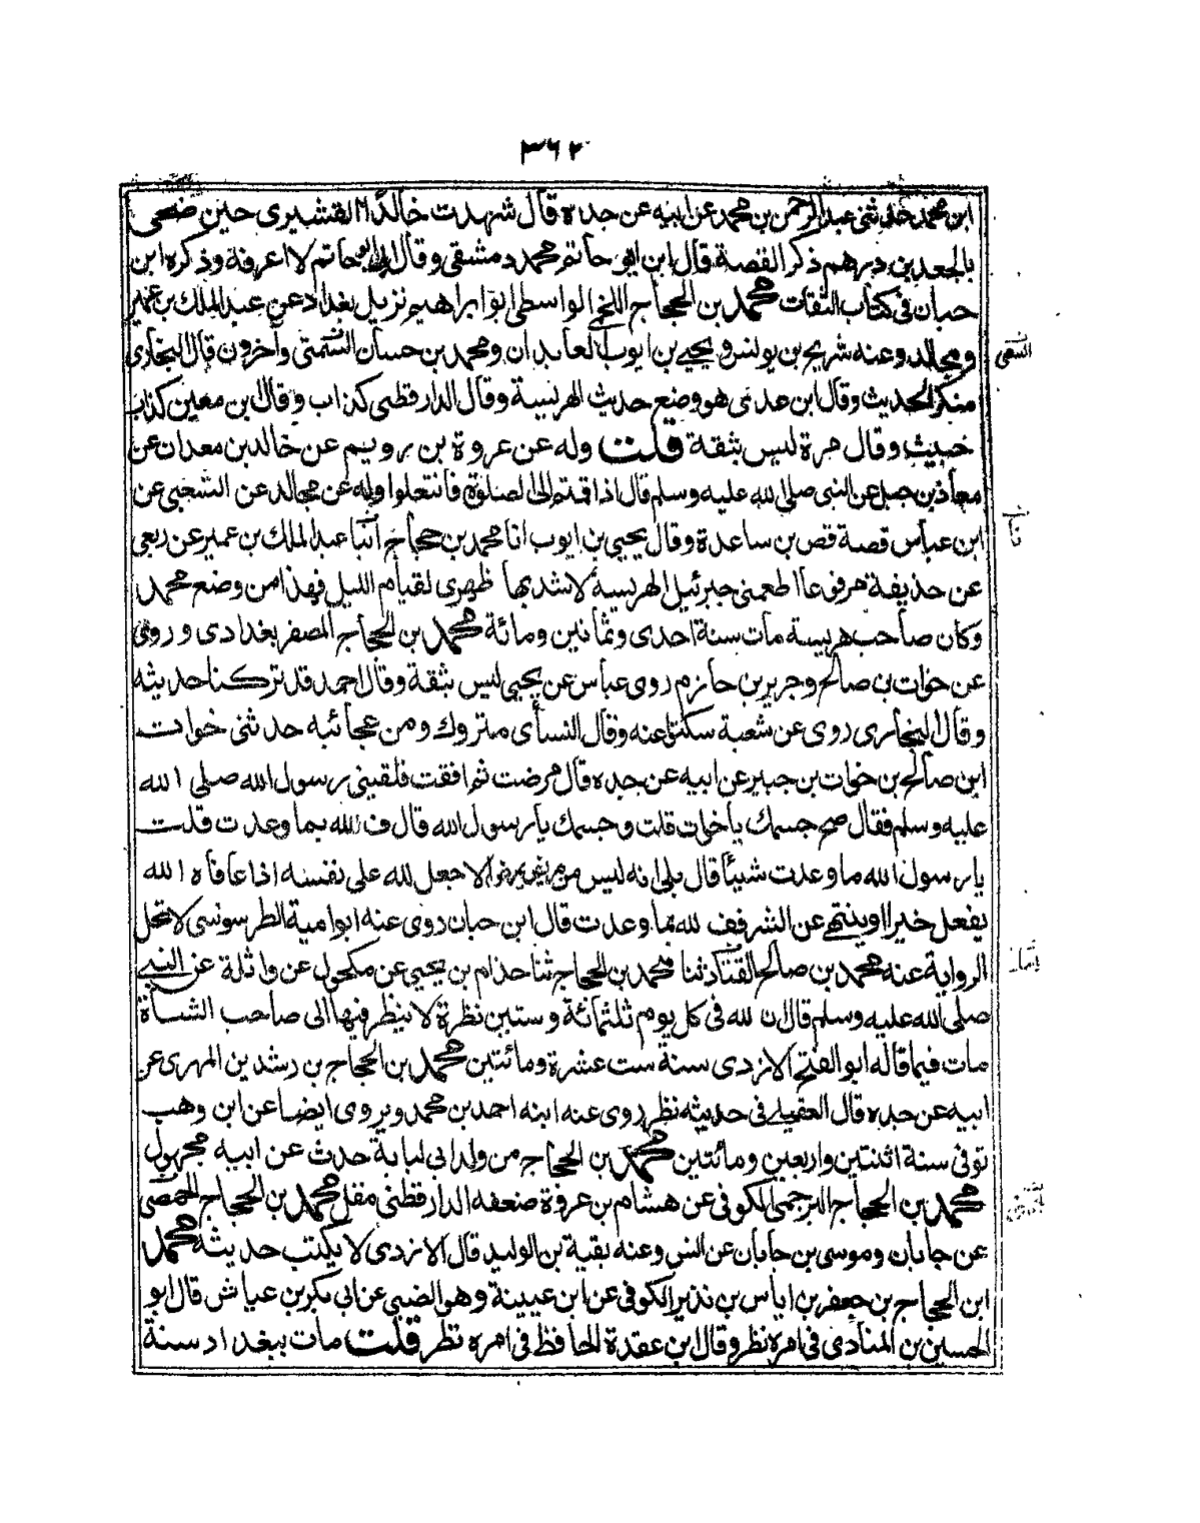 ٣٦٢
ابن محمد حدثنى عبد الرحمن بن محمد عن ابيه عن جده قال شهدت خالدا القشيرى حين ضحى
بالجعد بن درهم ذكر القصة قال ابن ابو حاتم محمد دمشقى وقال ابو حاتم لا اعرفة وذكره ابن
حبان فى كتاب الثقات محمد بن الحجاج اللخمى الواسطى ابو ابراهيم نزيل بغداد عن عبد الملك بن عمير
ومجالد وعنه شريح بن يونس ويحيى بن ايوب العابدان ومحمد بن حسان السمتى وآخرون قال البخارى
منكر الحديث وقال ابن عدى هو وضع حديث الهريسة وقال الدارقطنى كذاب وقال ابن معين كذاب
خبيث وقال مرة ليس بثقة قلت وله عن عروة بن رويم عن خالد بن معدان عن
معاذ بن جبل عن النبى صلى الله عليه وسلم قال اذا قمتم الى الصلوة فانتعلوا وله عن مجالد عن الشعبى عن
ابن عباس قصة قص بن ساعدة وقال يحيى بن ايوب انا محمد بن حجاج انبا عبد الملك بن عمير عن ربعى
عن حذيفة مرفوعا اطعمنى جبرئيل الهريسة لاشد بها ظهرى لقيام الليل فهذا من وضع محمد
وكان صاحب هريسة مات سنة احدى وثمانين ومائة محمد بن الحجاج المصفر بغدادى وروى
عن خوات بن صالح وجرير بن حازم روى عباس عن يحيى ليس بثقة وقال احمد قد تركنا حديثه
وقال البخارى روى عن شعبة سكتوا عنه وقال النسأى متروك ومن عجائبه حدثنى خوات
ابن صالح بن خوات بن جبير عن ابيه عن جده قال مرضت ثم افقت فلقينى رسول الله صلى الله
عليه وسلم فقال صح جسمك ياخوات قلت وجسمك يارسول الله قال ف لله بما وعدت قلت
يارسول الله ما وعدت شيئا قال بلى انه ليس من مريض يمرض الا جعل لله على نفسه اذا عافاه الله
يفعل خيرا او ينتهى عن الشر فف لله بما وعدت قال ابن حبان روى عنه ابوامية الطرسوسى لا تحل
الرواية عنه محمد بن صالح القناد ثنا محمد بن الحجاج ثنا حذام بن يحيى عن مكحول عن واثلة عن النبى
صلى الله عليه وسلم قال ان لله فى كل يوم ثلثمائة وستين نظرة لا ينظر فيها الى صاحب الشاة
مات فيما قاله ابو الفتح الازدى سنة ست عشرة ومائتين محمد بن الحجاج بن رشدين المهرى عن
ابيه عن جده قال العقيلى فى حديثه نظر روى عنه ابنه احمد بن محمد ويروى ايضا عن ابن وهب
توفى سنة اثنتين واربعين ومائتين محمد بن الحجاج من ولد ابى لبابة حدث عن ابيه مجهول
محمد بن الحجاج البرجمى الكوفى عن هشام بن عروة ضعفه الدارقطنى مقل محمد بن الحجاج الحمصى
عن جابان وموسى بن جابان عن انس وعنه بقية بن الوليد قال الازدى لا يكتب حديثه محمد
ابن الحجاج بن جعفر بن اياس بن نذير الكوفى عن ابن عيينة وهو الضبى عن ابى بكر بن عياش قال ابو
الحسين بن المنادى فى امره نظر وقال ابن عقدة الحافظ فى امره نظر قلت مات ببغداد سنة